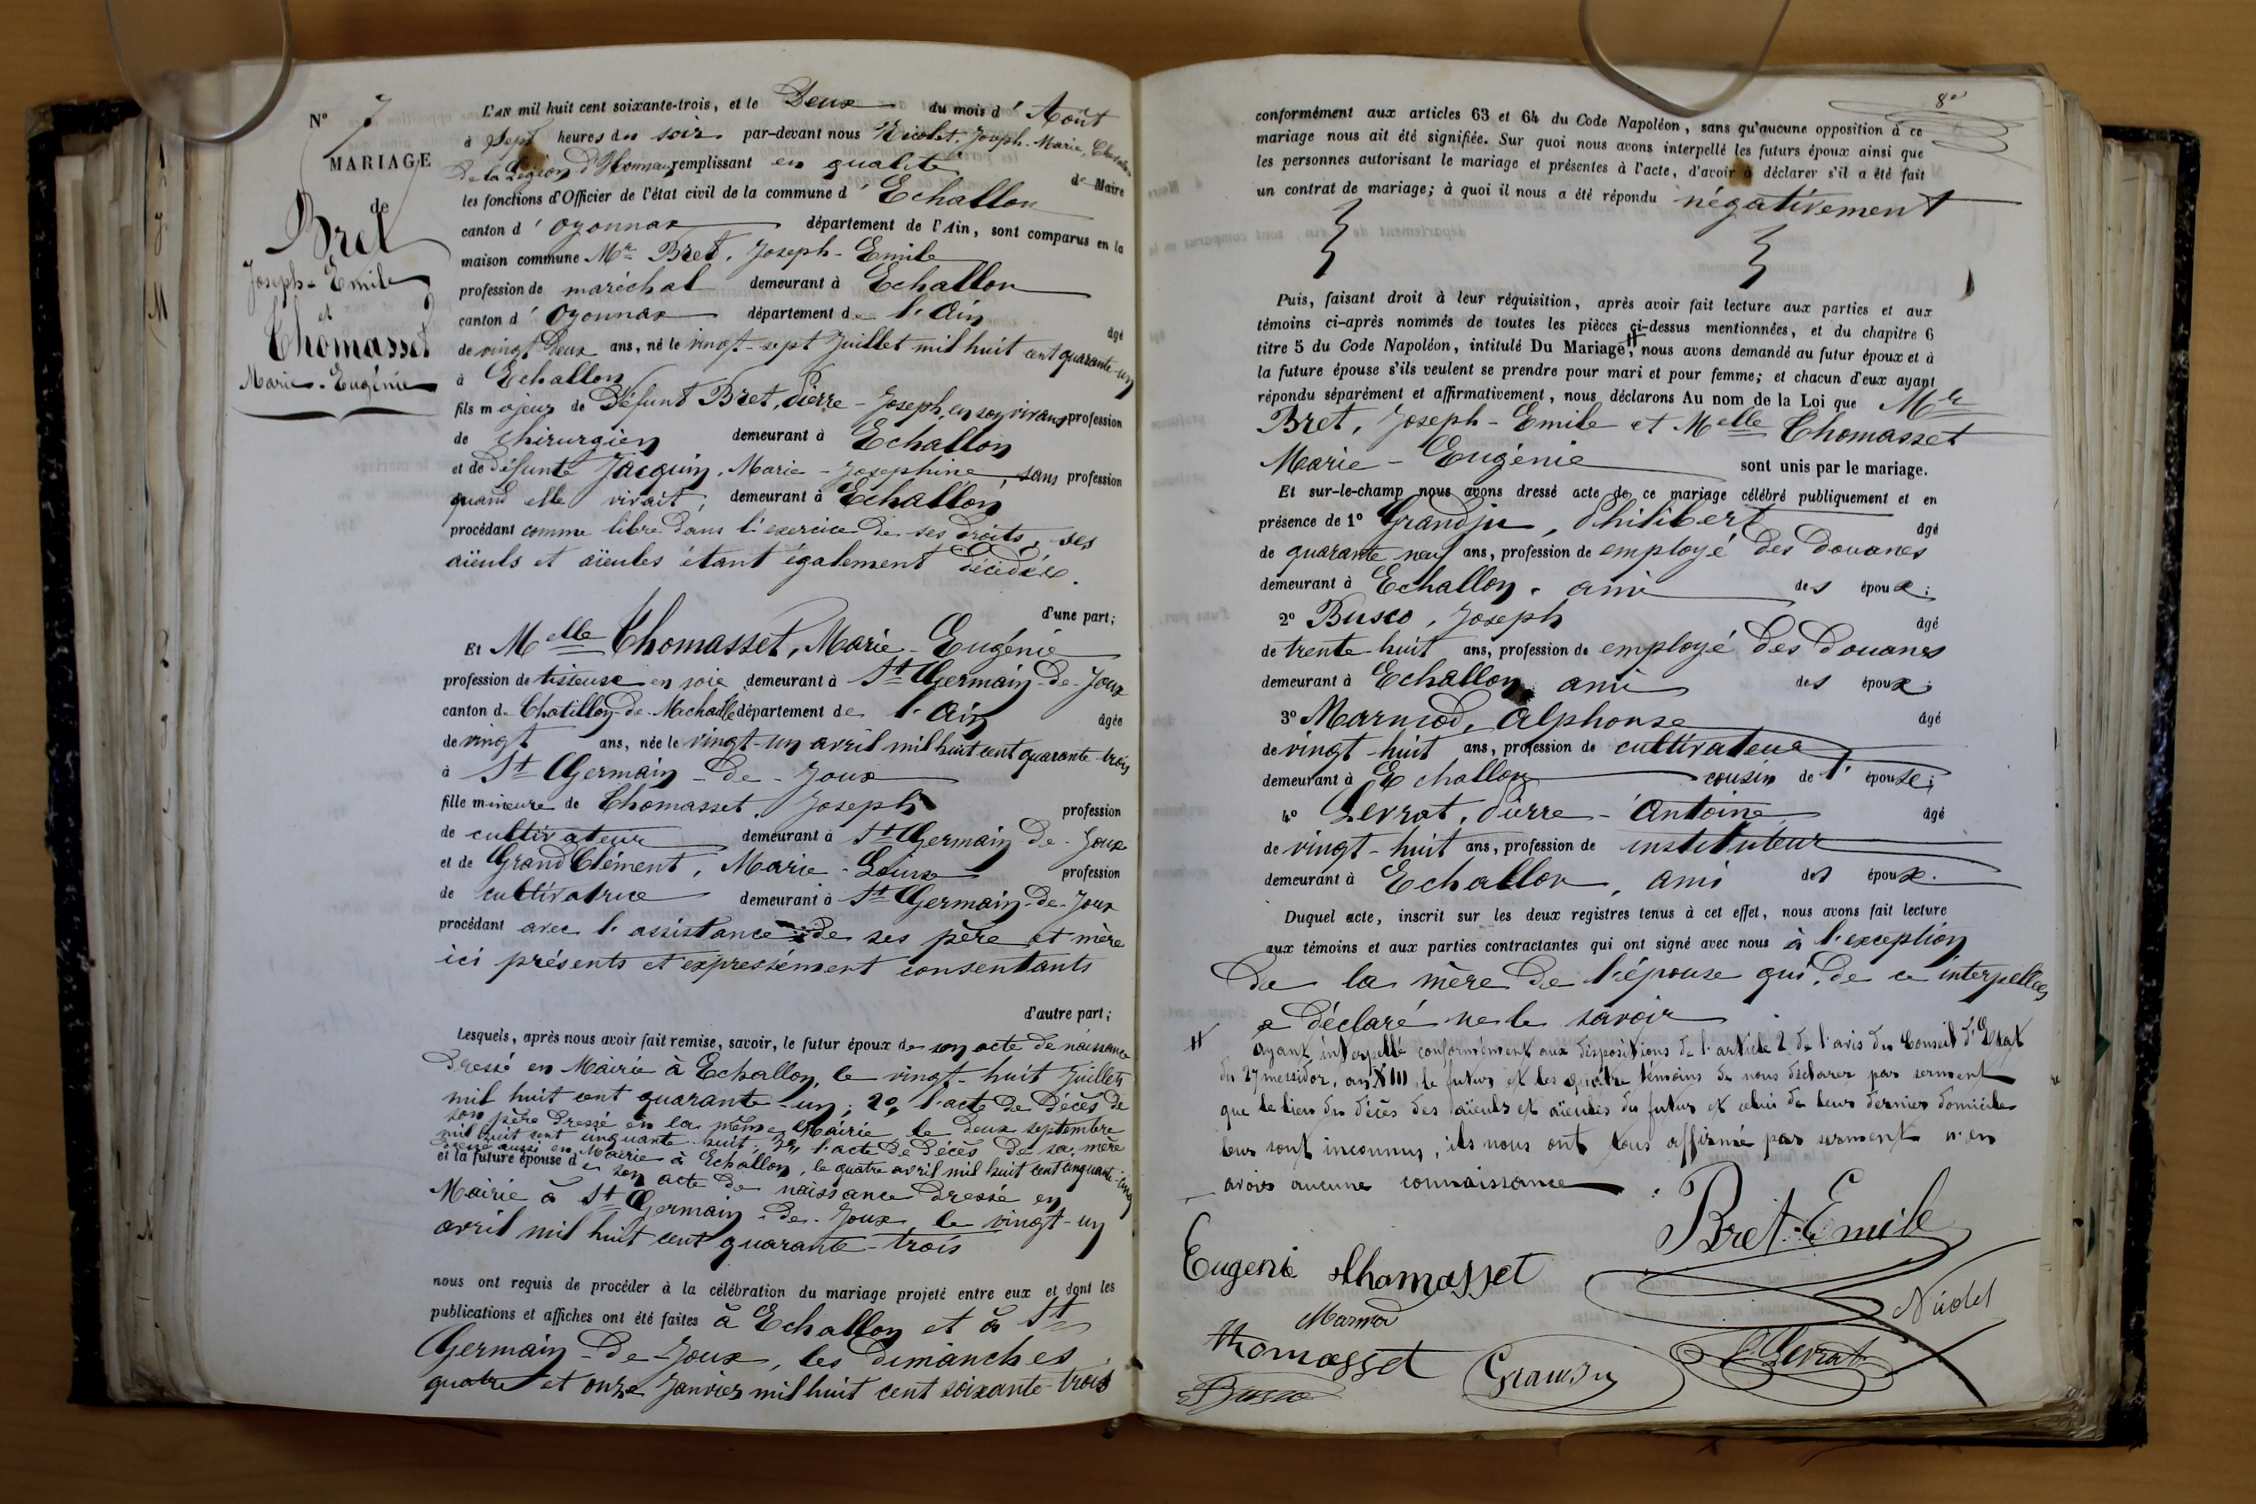 N° 7
MARIAGE
de
Bret
Joseph-Emile
et
Thomasset
Marie-Eugénie
L'AN mil huit cent soixante-trois, et le Deux du mois d'Août
à Sept heures du soir par-devant nous Nicolet, Joseph-Marie, Chevalier
De la Légion d'Honneur remplissant en qualité de Maire
les fonctions d'Officier de l'état civil de la commune d'Echallon
canton d'Oyonnax département de l'Ain, sont comparus en la
maison commune Mr Bret, Joseph-Emile
profession de maréchal demeurant à Echallon
canton d'Oyonnax département de l'Ain âgé
de vingt Deux ans, né le vingt-sept Juillet mil huit cent quarante-un
à Echallon
fils majeur de Défunt Bret, Pierre-Joseph, en son vivant profession
de chirurgien demeurant à Echallon
et de défunte Jacquin, Marie-Josephine, sans profession
quand elle vivait, demeurant à Echallon
procédant comme libre dans l'exercice de ses droits, ses
aïeuls et aïeules étant également décédés.
d'une part;
Et Melle Thomasset, Marie-Eugénie
profession de tisseuse en soie demeurant à St Germain-de-Joux
canton de Chatillon-de-Michaille département de l'Ain âgée
de vingt ans, née le vingt-un avril mil huit cent quarante-trois
à St Germain-de-Joux
fille mineure de Thomasset, Joseph profession
de cultivateur demeurant à St Germain-de-Joux
et de Grand Clément, Marie-Louise profession
de cultivatrice demeurant à St Germain-de-Joux
procédant avec l'assistance de ses père et mère
ici présents et expressément consentants
d'autre part;
Lesquels, après nous avoir fait remise, savoir, le futur époux de son acte de naissance
Dressé en Mairie à Echallon, le vingt-huit Juillet
mil huit cent quarante-un; 2° l'acte de décès de
son père dressé en la même Mairie le deux septembre
mil huit cent cinquante-huit; 3° l'acte de décès de sa mère
dressé aussi en Mairie à Echallon, le quatre avril mil huit cent cinquante-cinq
et la future épouse de son acte de naissance dressé en
Mairie à St Germain-de-Joux, le vingt-un
avril mil huit cent quarante-trois
nous ont requis de procéder à la célébration du mariage projeté entre eux et dont les
publications et affiches ont été faites à Echallon et à St
Germain-de-Joux, les dimanches
quatre et onze Janvier mil huit cent soixante-trois
8
conformément aux articles 63 et 64 du Code Napoléon, sans qu'aucune opposition à ce
mariage nous ait été signifiée. Sur quoi nous avons interpellé les futurs époux ainsi que
les personnes autorisant le mariage et présentes à l'acte, d'avoir à déclarer s'il a été fait
un contrat de mariage; à quoi il nous a été répondu négativement
Puis, faisant droit à leur réquisition, après avoir fait lecture aux parties et aux
témoins ci-après nommés de toutes les pièces ci-dessus mentionnées, et du chapitre 6
titre 5 du Code Napoléon, intitulé Du Mariage, # nous avons demandé au futur époux et à
la future épouse s'ils veulent se prendre pour mari et pour femme; et chacun d'eux ayant
répondu séparément et affirmativement, nous déclarons Au nom de la Loi que Mr
Bret, Joseph-Emile et Melle Thomasset
Marie-Eugénie sont unis par le mariage.
Et sur-le-champ nous avons dressé acte de ce mariage célébré publiquement et en
présence de 1° Grandju, Philibert âgé
de quarante neuf ans, profession de employé des douanes
demeurant à Echallon, ami des époux;
2° Busco, Joseph âgé
de trente-huit ans, profession de employé des douanes
demeurant à Echallon, ami des époux;
3° Marmod, Alphonse âgé
de vingt-huit ans, profession de cultivateur
demeurant à Echallon cousin de l'épouse;
4° Levrat, Pierre-Antoine âgé
de vingt-huit ans, profession de instituteur
demeurant à Echallon, ami des époux.
Duquel acte, inscrit sur les deux registres tenus à cet effet, nous avons fait lecture
aux témoins et aux parties contractantes qui ont signé avec nous à l'exception
de la mère de l'épouse qui, de ce interpellée,
a déclaré ne le savoir
# ayant interpellé conformément aux dispositions de l'article 2 de l'avis du Conseil d'Etat
du 27 messidor, an XIII, le futur et les quatre témoins de nous déclarer par serment
que le lieu du décès des aïeuls et aïeules du futur et celui de leur dernier domicile
leur sont inconnus, ils nous ont tous affirmé par serment n'en
avoir aucune connaissance.
Bret Emile
Eugenie thomasset
Nicolet
Marmod
thomasset
Grandju
Levrat
Busco